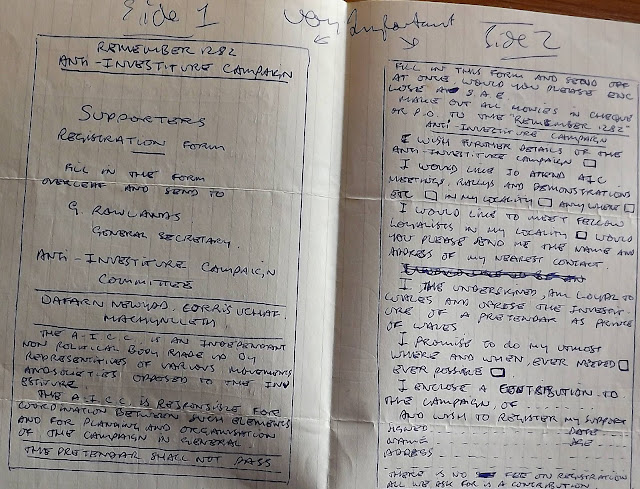 Side 1
very Important
REMEMBER 1282
ANTI-INVESTITURE CAMPAIGN
SUPPORTERS
REGISTRATION FORM
FILL IN THE FORM
OVERLEAF AND SEND TO
G. RAWLANDS
GENERAL SECRETARY.
ANTI-INVESTITURE CAMPAIGN
COMMITTEE
DAFARN NEWYDD. CORRIS UCHAF.
MACHYNLLETH
THE A.I.C.C. IS AN INDEPENDANT
NON POLITICAL BODY MADE UP OF
REPRESENTITIVES OF VARIOUS MOVEMENTS
AND SOCIETIES OPPOSED TO THE INV
ESTITURE
THE A.I.C.C. IS RESPONSIBLE FOR
COORDINATION BETWEEN SUCH ELEMENTS
AND FOR PLANING AND ORGANISATION
OF THE CAMPAIGN IN GENERAL.
THE PRETENDAR SHALL NOT PASS
Side 2
FILL IN THIS FORM AND SEND OFF
AT ONCE WOULD YOU PLEASE ENC
LOSE A S A E
MAKE OUT ALL MONIES IN CHEQUE
OR P.O. TO THE "REMEMBER 1282"
ANTI-INVESTITURE CAMPAIGN
I WISH FURTHER DETAILS OF THE
ANTI-INVESTITURE CAMPAIGN
I WOULD LIKE TO ATEND AIC
MEETINGS, RALLYS AND DEMONSTRATIONS
ETC IN MY LOCALITY ANYWHERE
I WOULD LIKE TO MEET FELLOW
LOYALISTS IN MY LOCALITY WOULD
YOU PLEASE SEND ME THE NAME AND
ADDRESS OF MY NEAREST CONTACT.
I THE UNDERSIGNED, AM LOYAL TO
WALES AND OPPOSE THE INVESTIT-
URE OF A PRETENDAR AS PRINCE
OF WALES
I PROMISE TO DO MY UTMOST
WHERE AND WHEN, EVER NEEDED
EVER POSSIBLE
I ENCLOSE A CONTRIBUTION TO
THE CAMPAIGN OF
AND WISH TO REGISTER MY SUPPORT
SIGNED DATE
NAME AGE
ADDRESS
THERE IS NO FEE ON REGISTRATION
ALL WE ASK FOR IS A CONTRIBUTION